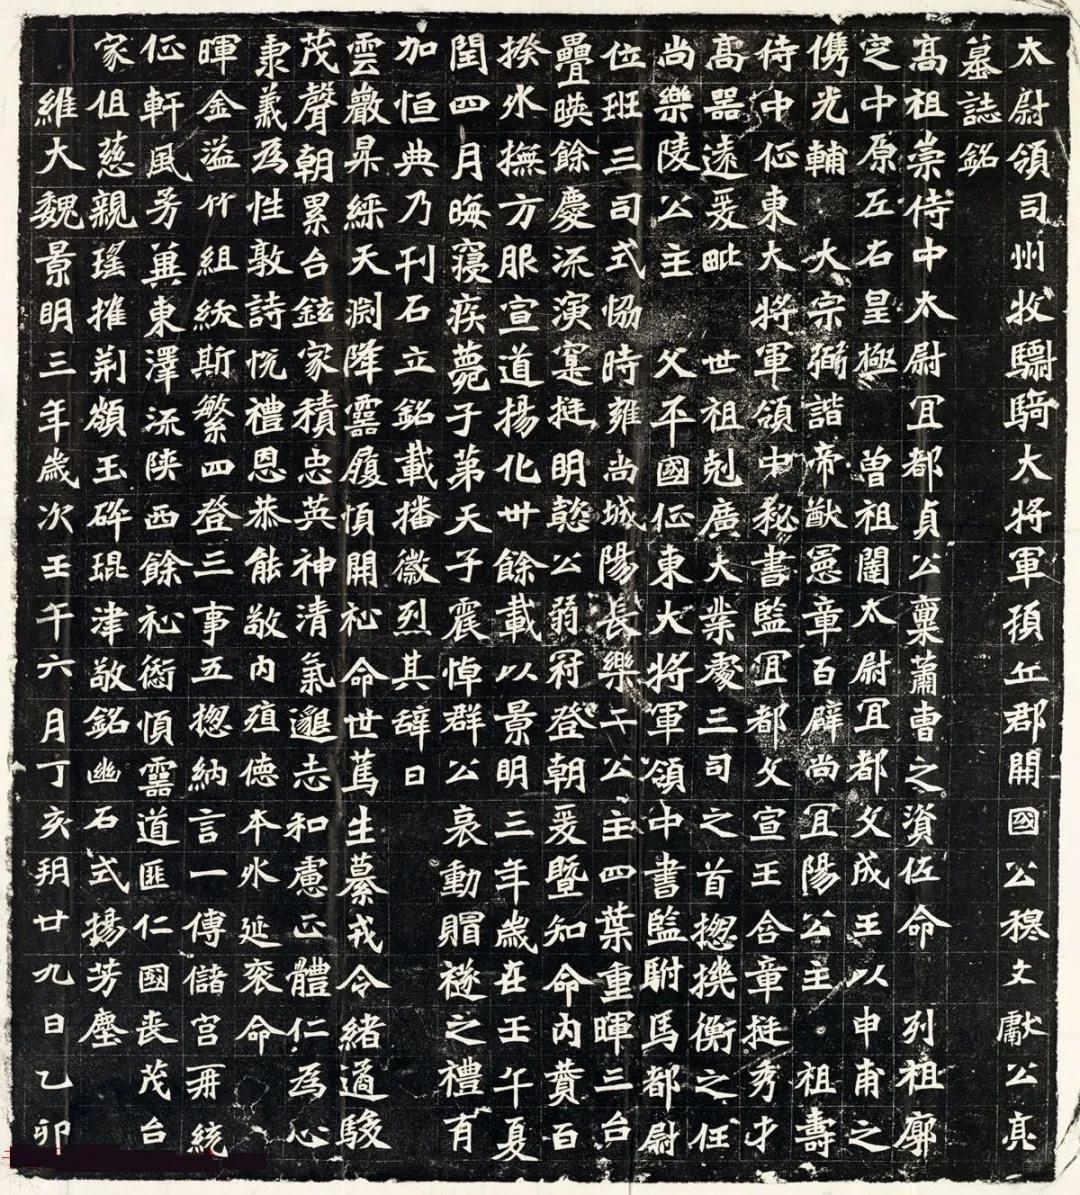 太尉領司州牧驃騎大將軍頓丘郡開國公穆文獻公亮
墓誌銘
高祖崇侍中太尉冝都貞公稟蕭曹之資佐命 列祖廓
定中原左右皇極 曾祖闥太尉冝都文成王以申甫之
儁光輔 大宗弼諧帝猷憲章百辟尚冝陽公主 祖壽
侍中征東大將軍領中秘書監冝都文宣王含章挺秀才
高器遠爰毗 世祖剋廣大業處三司之首揔機衡之任
尚樂陵公主 父平國征東大將軍領中書監駙馬都尉
位班三司式協時雍尚城陽長樂二公主四葉重暉三台
疊暎餘慶流演寔挺明懿公弱冠登朝爰暨知命內贊百
揆外撫方服宣道揚化卅餘載以景明三年歲在壬午夏
閏四月晦寢疾薨于第天子震悼群公哀動賵襚之禮有
加恒典乃刊石立銘載播徽烈其辭曰
雲巖昇綵天淵降靈履順開祉命世篤生纂戎令緒遹駿
茂聲朝累台鉉家積忠英神清氣邈志和慮正體仁為心
秉義為性敦詩悅禮恩恭能敬內殖德本外延袞命
暉金溢竹組紱斯繁四登三事五揔納言一傅儲宮再統
征軒風芳冀東澤流陝西餘祉銜順靈道匪仁國喪茂台
家徂慈親瑤摧荊頟玉碎琨津敬銘幽石式揚芳塵
維大魏景明三年歲次壬午六月丁亥朔廿九日乙卯